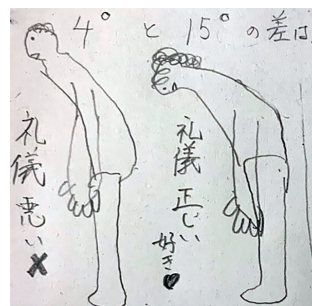 4° と 15° の差は
礼儀 悪い ×
礼儀 正しい
好き♥